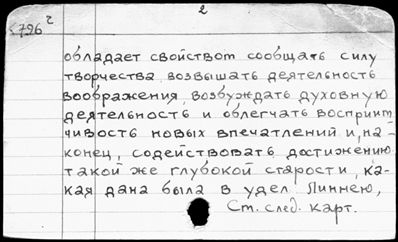 2
5796 г
обладает свойством сообщать силу
творчества возвышать деятельность
воображения, возбуждать духовную
деятельность и облегчать восприим
чивость новых впечатлений и, на-
конец, содействовать достижению
такой же глубокой старости, ка-
кая дана была в удел Линнею,
См. след. карт.